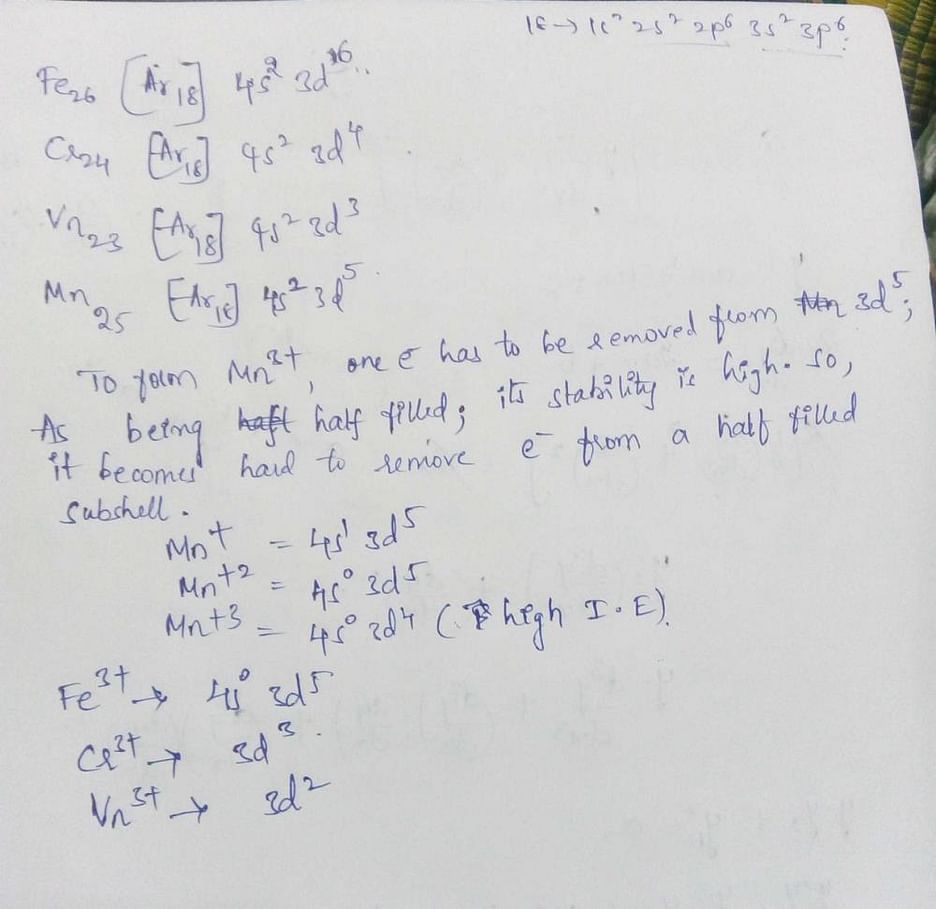 1s² 2s² 2p⁶ 3s² 3p⁶
Fe₂₆ [Ar₁₈] 4s² 3d⁶
Cr₂₄ [Ar₁₈] 4s² 3d⁴
Vn₂₃ [Ar₁₈] 4s² 3d³
Mn₂₅ [Ar₁₈] 4s² 3d⁵
To form Mn³⁺, one e⁻ has to be removed from 3d⁵;
As being half filled; its stability is high. so,
it becomes hard to remove e⁻ from a half filled
subshell.
Mn⁺ = 4s¹ 3d⁵
Mn⁺² = 4s⁰ 3d⁵
Mn⁺³ = 4s⁰ 3d⁴ (high I.E).
Fe³⁺ → 4s⁰ 3d⁵
Cr³⁺ → 3d³
Vn³⁺ → 3d²